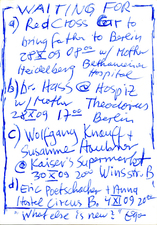 WAITING FOR
a) Red Cross Car to
bring father to Berlin
28 XI 09 08 00 w/ Mother
Heidelberg Bethanien
Hospital
b) Dr. Hass @ Hospiz
w/ Mother Theodorus
28 XI 09 17 00 Berlin
c) Wolfgang Knauff +
Susanne
@ Kaiser's Supermarket
30 XI 09 2000 Winsstr. B
d) Eric Poetschacher + Anna
Hotel Circus B, 4 XI 09 200
"What else is new?"